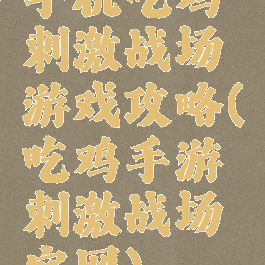 手机吃鸡
刺激战场
游戏攻略(
吃鸡手游
刺激战场
官网)